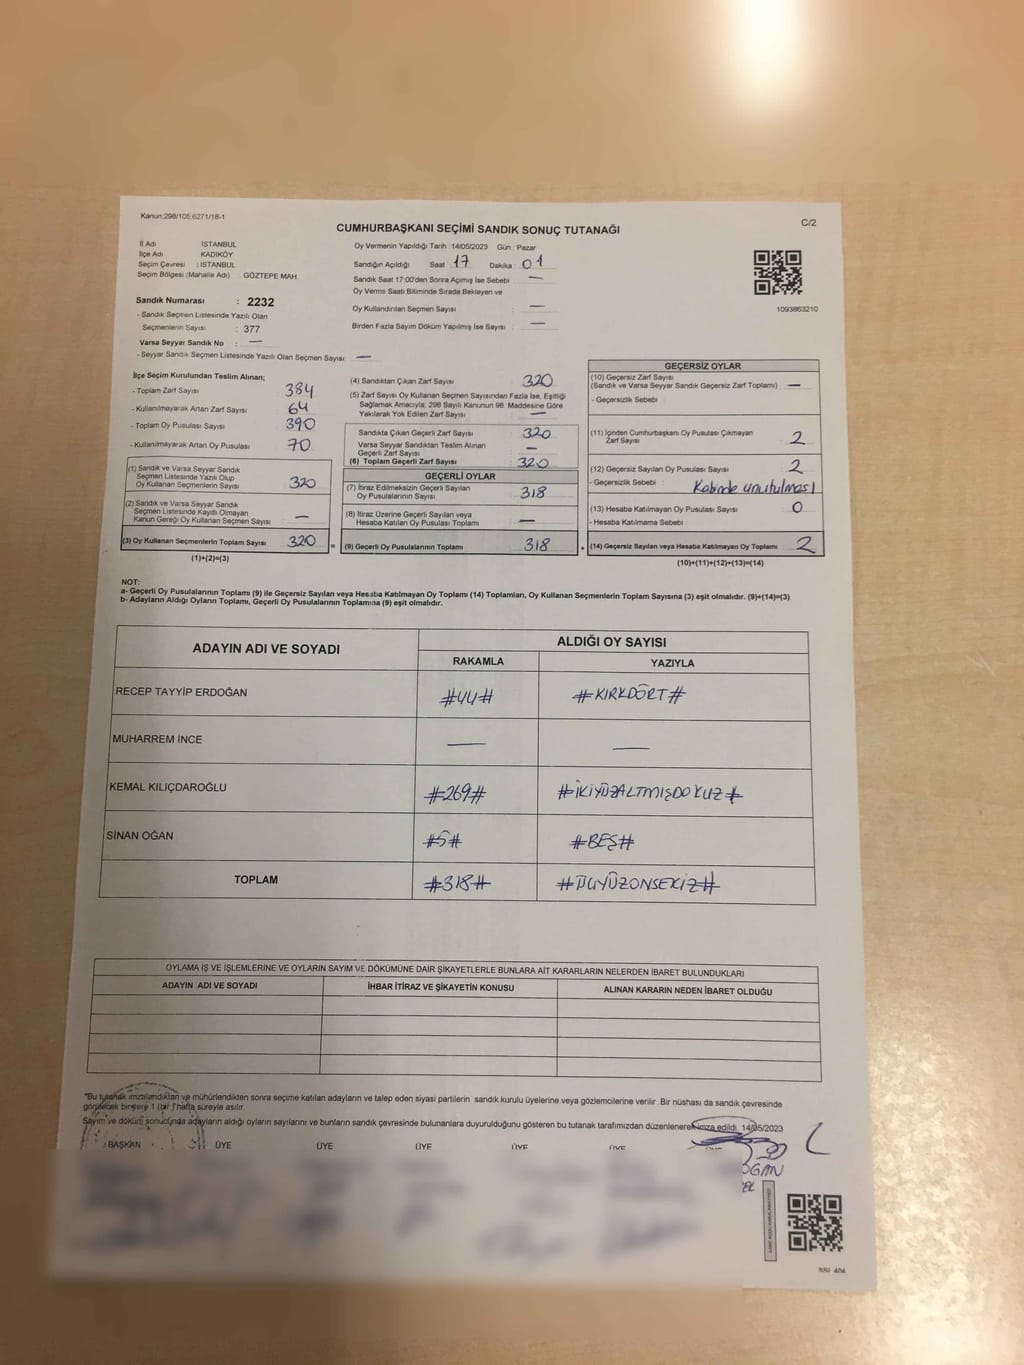 Kanun:298/105;6271/18-1
C/2
CUMHURBAŞKANI SEÇİMİ SANDIK SONUÇ TUTANAĞI
İl Adı İSTANBUL
İlçe Adı KADIKÖY
Seçim Çevresi : İSTANBUL
Seçim Bölgesi (Mahalle Adı) GÖZTEPE MAH.
Oy Vermenin Yapıldığı Tarih : 14/05/2023 Gün : Pazar
Sandığın Açıldığı Saat 17 Dakika : 01
Sandık Saat 17:00'den Sonra Açımış İse Sebebi —
Oy Verme Saati Bitiminde Sırada Bekleyen ve
Oy Kullandırılan Seçmen Sayısı : —
Birden Fazla Sayım Döküm Yapılmış İse Sayısı : —
1093863210
Sandık Numarası : 2232
- Sandık Seçmen Listesinde Yazılı Olan
Seçmenlerin Sayısı : 377
Varsa Seyyar Sandık No : —
- Seyyar Sandık Seçmen Listesinde Yazılı Olan Seçmen Sayısı: —
İlçe Seçim Kurulundan Teslim Alınan;
- Toplam Zarf Sayısı 384
- Kullanılmayarak Artan Zarf Sayısı 64
- Toplam Oy Pusulası Sayısı 390
- Kullanılmayarak Artan Oy Pusulası 70
(1) Sandık ve Varsa Seyyar Sandık
Seçmen Listesinde Yazılı Olup
Oy Kullanan Seçmenlerin Sayısı 320
(2) Sandık ve Varsa Seyyar Sandık
Seçmen Listesinde Kaydı Olmayan
Kanun Gereği Oy Kullanan Seçmen Sayısı —
(3) Oy Kullanan Seçmenlerin Toplam Sayısı 320
(1)+(2)=(3)
(4) Sandıktan Çıkan Zarf Sayısı 320
(5) Zarf Sayısı Oy Kullanan Seçmen Sayısından Fazla İse, Eşitliği
Sağlamak Amacıyla; 298 Sayılı Kanunun 98. Maddesine Göre
Yakılarak Yok Edilen Zarf Sayısı —
Sandıkta Çıkan Geçerli Zarf Sayısı 320
Varsa Seyyar Sandıktan Teslim Alınan
Geçerli Zarf Sayısı —
(6) Toplam Geçerli Zarf Sayısı 320
GEÇERLİ OYLAR
(7) İtiraz Edilmeksizin Geçerli Sayılan
Oy Pusulalarının Sayısı 318
(8) İtiraz Üzerine Geçerli Sayılan veya
Hesaba Katılan Oy Pusulası Toplamı —
= (9) Geçerli Oy Pusulalarının Toplamı 318
GEÇERSİZ OYLAR
(10) Geçersiz Zarf Sayısı
(Sandık ve Varsa Seyyar Sandık Geçersiz Zarf Toplamı) —
- Geçersizlik Sebebi :
(11) İçinden Cumhurbaşkanı Oy Pusulası Çıkmayan
Zarf Sayısı 2
(12) Geçersiz Sayılan Oy Pusulası Sayısı 2
- Geçersizlik Sebebi : Kabinde unutulması
(13) Hesaba Katılmayan Oy Pusulası Sayısı 0
- Hesaba Katılmama Sebebi :
+ (14) Geçersiz Sayılan veya Hesaba Katılmayan Oy Toplamı 2
(10)+(11)+(12)+(13)=(14)
NOT:
a- Geçerli Oy Pusulalarının Toplamı (9) ile Geçersiz Sayılan veya Hesaba Katılmayan Oy Toplamı (14) Toplamları, Oy Kullanan Seçmenlerin Toplam Sayısına (3) eşit olmalıdır. (9)+(14)=(3)
b- Adayların Aldığı Oyların Toplamı, Geçerli Oy Pusulalarının Toplamına (9) eşit olmalıdır.
ADAYIN ADI VE SOYADI ALDIĞI OY SAYISI
RAKAMLA YAZIYLA
RECEP TAYYİP ERDOĞAN #44# #KIRKDÖRT#
MUHARREM İNCE — —
KEMAL KILIÇDAROĞLU #269# #İKİYÜZALTMIŞDOKUZ#
SİNAN OĞAN #5# #BEŞ#
TOPLAM #318# #ÜÇYÜZONSEKİZ#
OYLAMA İŞ VE İŞLEMLERİNE VE OYLARIN SAYIM VE DÖKÜMÜNE DAİR ŞİKAYETLERLE BUNLARA AİT KARARLARIN NELERDEN İBARET BULUNDUKLARI
ADAYIN ADI VE SOYADI İHBAR İTİRAZ VE ŞİKAYETİN KONUSU ALINAN KARARIN NEDEN İBARET OLDUĞU
"Bu tutanak imzalandıktan ve mühürlendikten sonra seçime katılan adayların ve talep eden siyasi partilerin sandık kurulu üyelerine veya gözlemcilerine verilir. Bir nüshası da sandık çevresinde
görülecek bir yere 1 (bir) hafta süreyle asılır.
Sayım ve döküm sonucunda adayların aldığı oyların sayılarını ve bunların sandık çevresinde bulunanlara duyurulduğunu gösteren bu tutanak tarafımızdan düzenlenerek imza edildi. 14/05/2023
BAŞKAN ÜYE ÜYE ÜYE ÜYE ÜYE